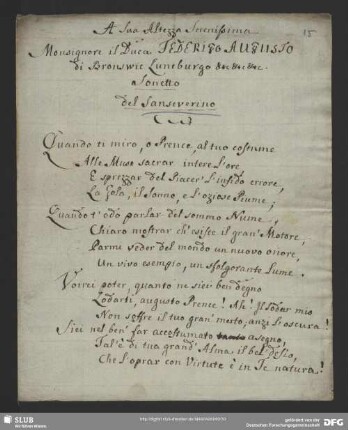 15
A Sua Altezza Serenissima
Monsignore il Duca FEDERIGO AUGUSTO
di Bronswic Luneburgo &c. &c. &c.
Sonetto
del Sanseverino
Quando ti miro, o Prence, al tuo costume
Alle Muse sacrar intere l'ore
E sprezzar del Piacer l'insido errore,
La Gola, il Sonno, e l'oziose Piume;
Quando t'odo parlar del sommo Nume,
Chiaro mostrar ch'esisce il gran' Motore;
Parmi veder del mondo un nuovo onore,
Un vivo esempio, un sfolgorante Lume.
Vorrei poter, quanto ne siei ben degno
Lodarti, augusto Prence! Ah! il lodar mio
Non soffre il tuo gran' merto, anzi l'oscura!
Siei nel ben' far accostumato a segno,
Tal'è di tua grand' Alma il bel Desio,
Che l'oprar con Virtute è in Te natura!
SLUB
Wir führen Wissen.
http://digital.slub-dresden.de/
gefördert von der
Deutschen Forschungsgemeinschaft
DFG